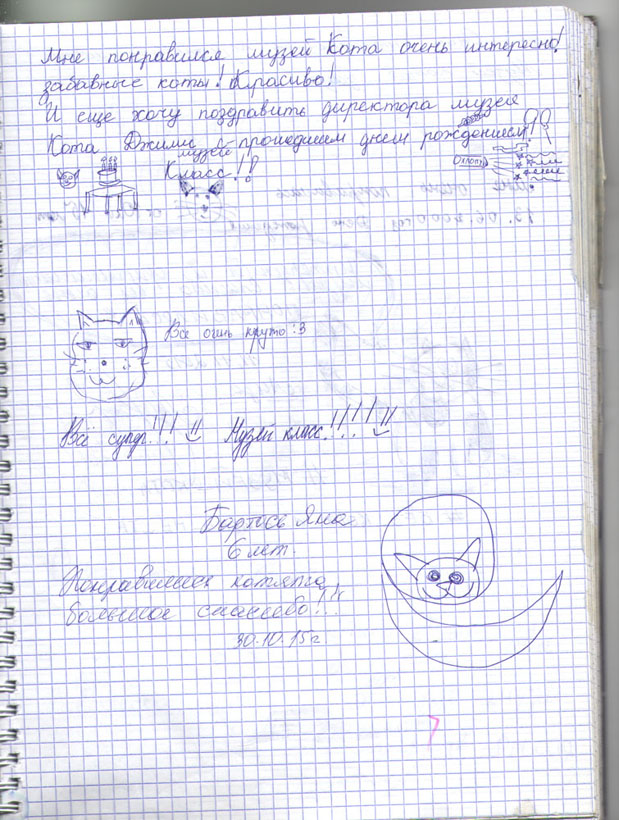 Мне понравился музей Кота очень интересно!
забавные коты! Красиво!
И еще хочу поздравить директора музея
Кота Джими с прошедшим днем рождением!!
музей
Класс!!
Все очень круто :3
Всё супер!!! Музей класс!!!!
Яна
6 лет.
Понравились котята
большое спасибо!!!
30.10.15г
7